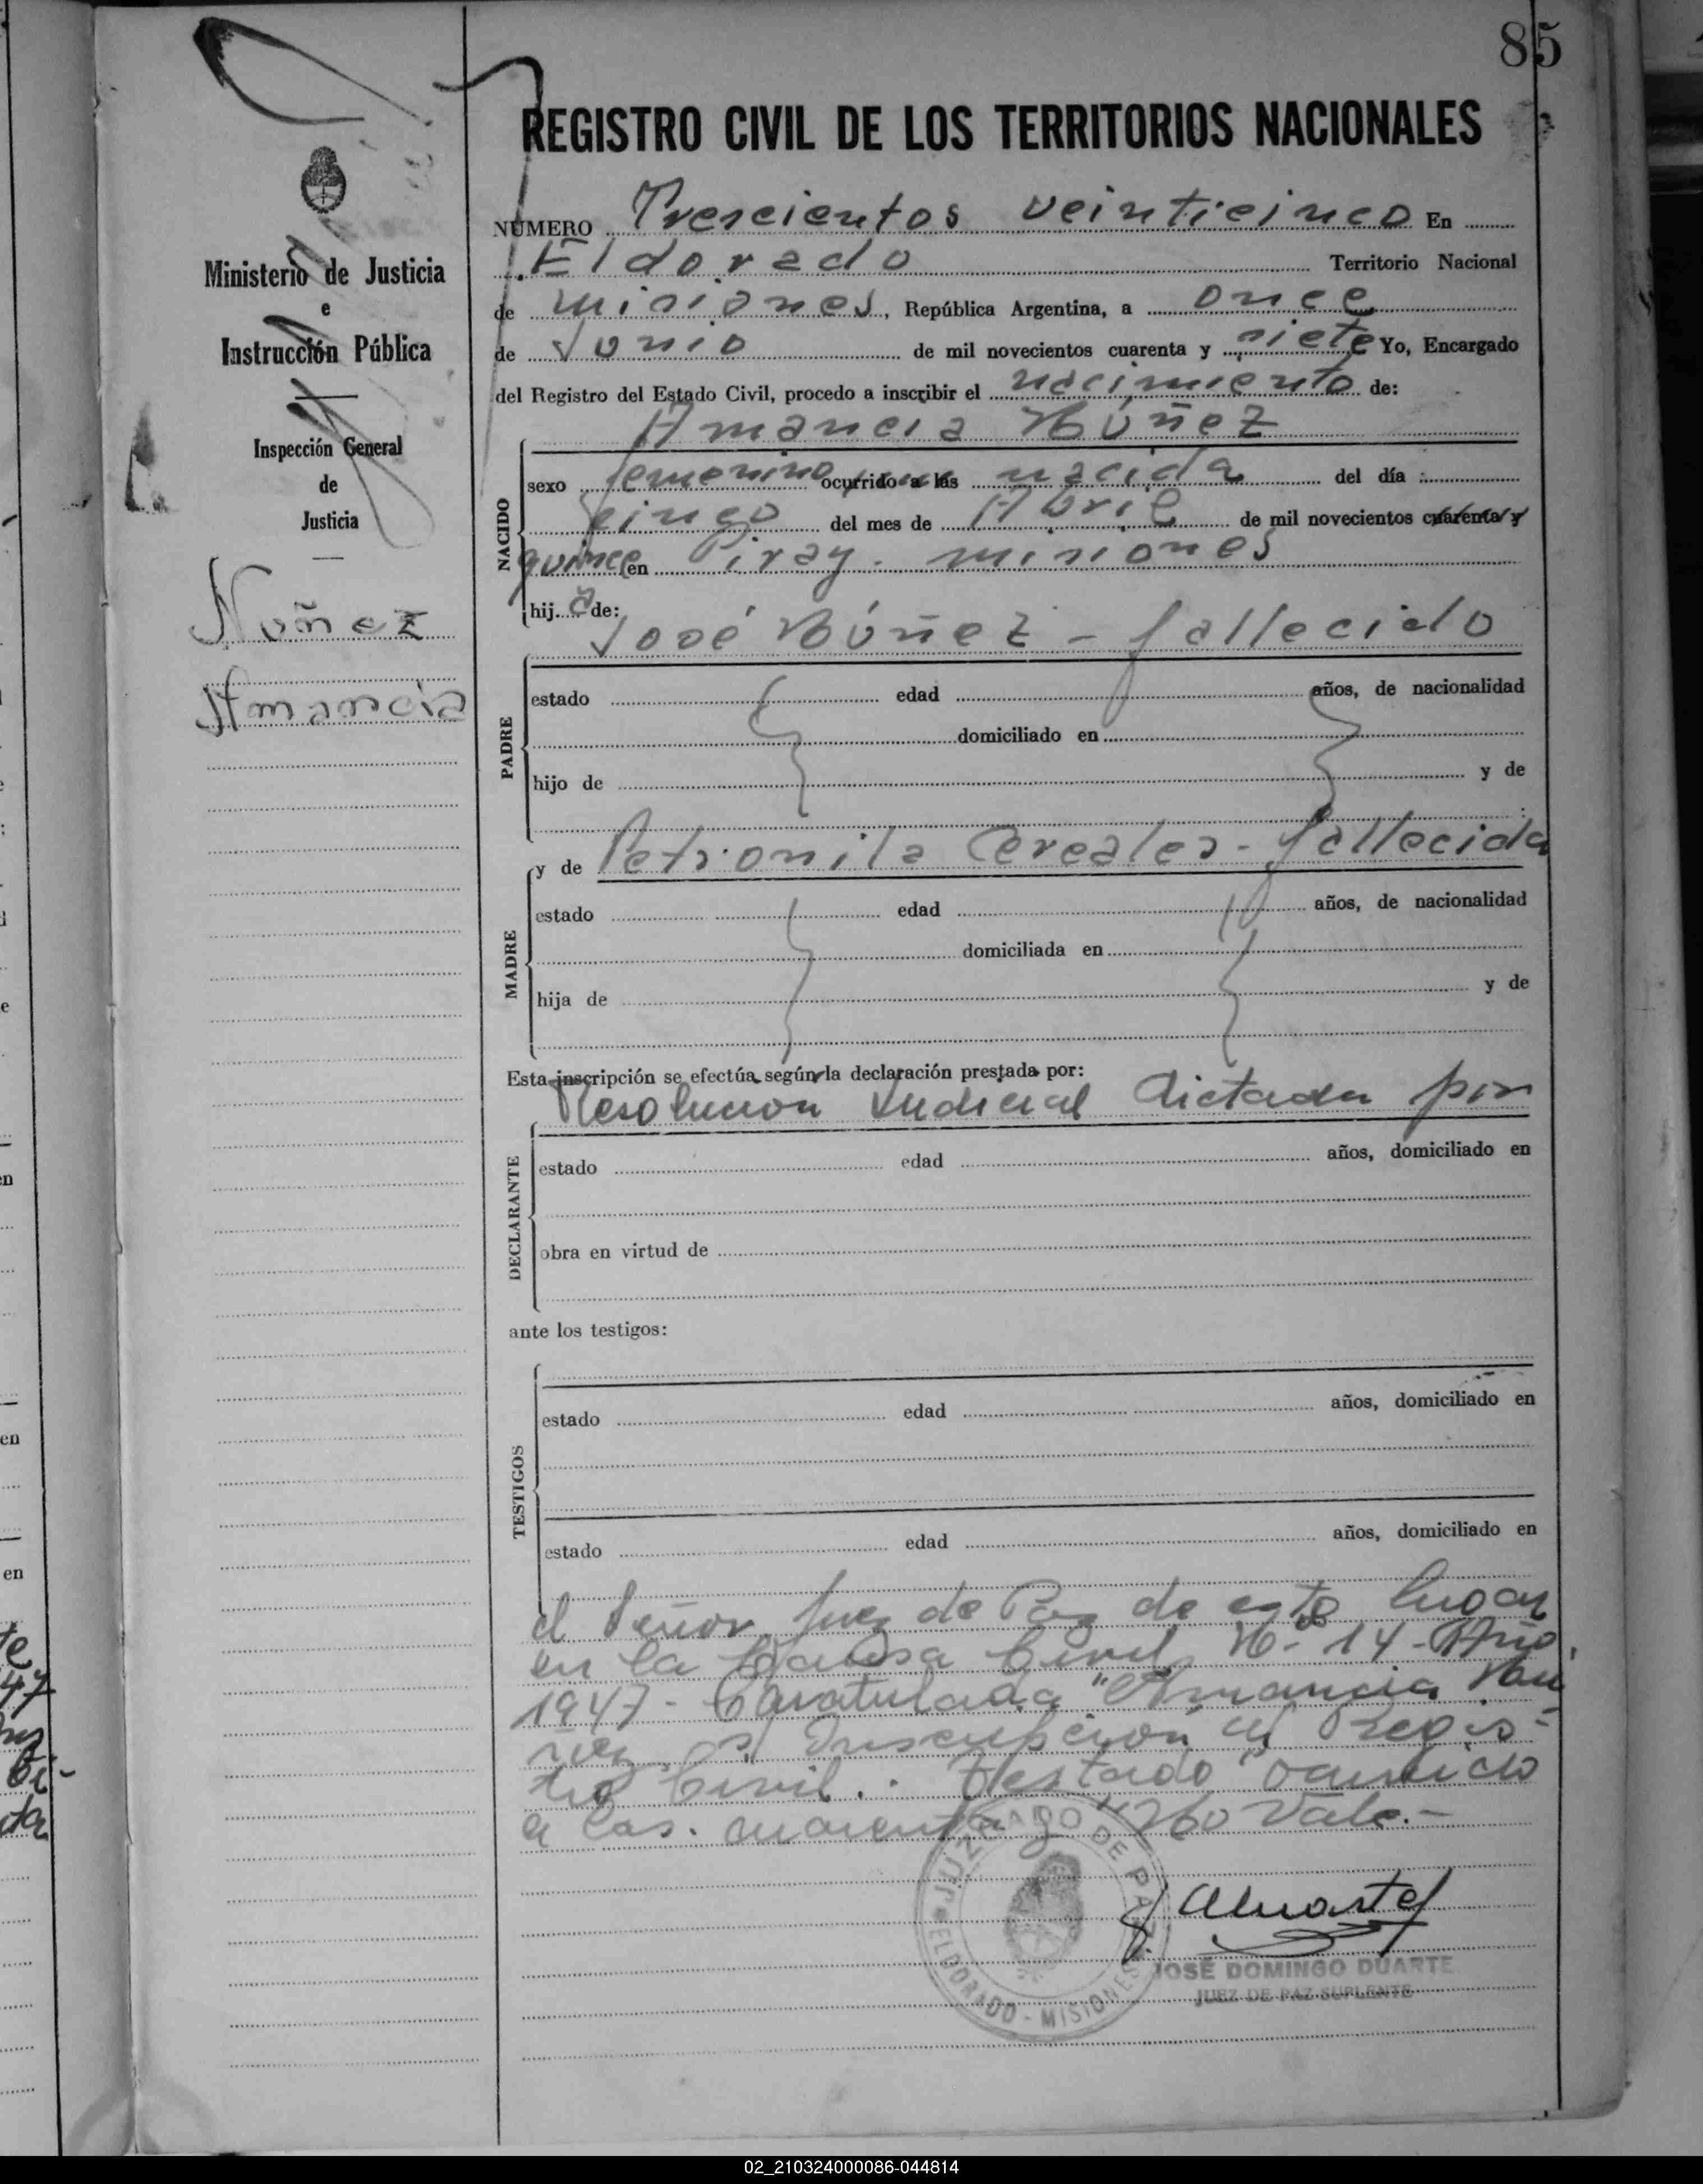 85
REGISTRO CIVIL DE LOS TERRITORIOS NACIONALES
Ministerio de Justicia
e
Instrucción Pública
Inspección General
de
Justicia
Núñez
Amancia
NÚMERO Trescientos veinticinco En
Eldorado Territorio Nacional
de misiones, República Argentina, a once
de Junio de mil novecientos cuarenta y siete Yo, Encargado
del Registro del Estado Civil, procedo a inscribir el nacimiento de:
Amancia Núñez
NACIDO
sexo femenino ocurrido a las nacida del día
cinco del mes de Abril de mil novecientos cuarenta y
quince en Piray - misiones
hij a de:
José Núñez - fallecido
PADRE
estado edad años, de nacionalidad
domiciliado en
hijo de y de
y de Petronila Cereales - fallecida
MADRE
estado edad años, de nacionalidad
domiciliada en
hija de y de
Esta inscripción se efectúa según la declaración prestada por:
Resolucion Judicial dictada por
DECLARANTE
estado edad años, domiciliado en
obra en virtud de
ante los testigos:
TESTIGOS
estado edad años, domiciliado en
estado edad años, domiciliado en
el Señor Juez de Paz de este lugar
en la Causa Civil No- 14 - Año
1947 - Caratulada "Amancia Nu-
ñez s/ Inscripcion en Regis-
tro Civil. Testado ocurrido
a las. cuarenta y No Vale.-
JUZGADO DE PAZ
ELDORADO - MISIONES
JOSÉ DOMINGO DUARTE
JUEZ DE PAZ SUPLENTE
02_210324000086-044814